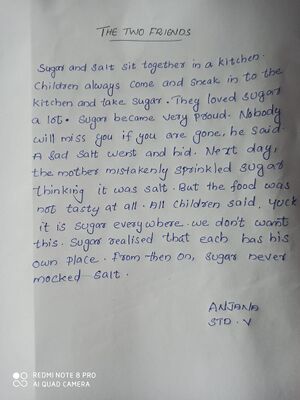 THE TWO FRIENDS
Sugar and salt sit together in a kitchen.
Children always come and sneak in to the
kitchen and take sugar. They loved sugar
a lot. Sugar became very proud. Nobody
will miss you if you are gone, he said.
A sad salt went and hid. Next day,
the mother mistakenly sprinkled sugar
thinking it was salt. But the food was
not tasty at all. All children said, yuck
it is sugar everywhere. we don't want
this. Sugar realised that each has his
own place. From then on, sugar never
mocked salt.
ANJANA
STD. V
REDMI NOTE 8 PRO
AI QUAD CAMERA